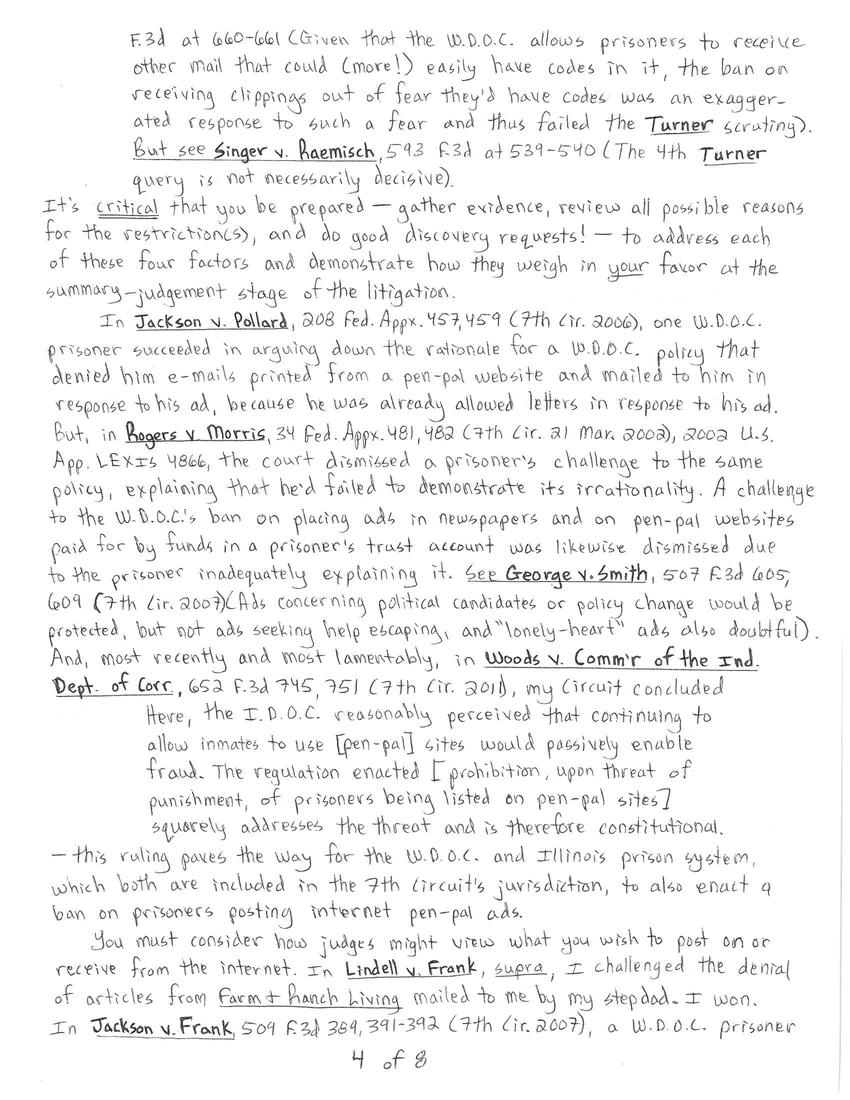 F.3d at 660-661 (Given that the W.D.O.C. allows prisoners to receive
other mail that could (more!) easily have codes in it, the ban on
receiving clippings out of fear they'd have codes was an exagger-
ated response to such a fear and thus failed the Turner scrutiny).
But see Singer v. Raemisch, 593 F.3d at 539-540 (The 4th Turner
query is not necessarily decisive).
It's critical that you be prepared — gather evidence, review all possible reasons
for the restriction(s), and do good discovery requests! — to address each
of these four factors and demonstrate how they weigh in your favor at the
summary-judgement stage of the litigation.
In Jackson v. Pollard, 208 Fed. Appx. 457, 459 (7th Cir. 2006), one W.D.O.C.
prisoner succeeded in arguing down the rationale for a W.D.O.C. policy that
denied him e-mails printed from a pen-pal website and mailed to him in
response to his ad, because he was already allowed letters in response to his ad.
But, in Rogers v. Morris, 34 Fed. Appx. 481, 482 (7th Cir. 21 Mar. 2002), 2002 U.S.
App. LEXIS 4866, the court dismissed a prisoner's challenge to the same
policy, explaining that he'd failed to demonstrate its irrationality. A challenge
to the W.D.O.C.'s ban on placing ads in newspapers and on pen-pal websites
paid for by funds in a prisoner's trust account was likewise dismissed due
to the prisoner inadequately explaining it. See George v. Smith, 507 F.3d 605,
609 (7th Cir. 2007)(Ads concerning political candidates or policy change would be
protected, but not ads seeking help escaping, and "lonely-heart" ads also doubtful).
And, most recently and most lamentably, in Woods v. Comm'r of the Ind.
Dept. of Corr., 652 F.3d 745, 751 (7th Cir. 2011), my Circuit concluded
Here, the I.D.O.C. reasonably perceived that continuing to
allow inmates to use [pen-pal] sites would passively enable
fraud. The regulation enacted [prohibition, upon threat of
punishment, of prisoners being listed on pen-pal sites]
squarely addresses the threat and is therefore constitutional.
— this ruling paves the way for the W.D.O.C. and Illinois prison system,
which both are included in the 7th Circuit's jurisdiction, to also enact a
ban on prisoners posting internet pen-pal ads.
You must consider how judges might view what you wish to post on or
receive from the internet. In Lindell v. Frank, supra, I challenged the denial
of articles from Farm + Ranch Living mailed to me by my stepdad. I won.
In Jackson v. Frank, 509 F.3d 389, 391-392 (7th Cir. 2007), a W.D.O.C. prisoner
4 of 8